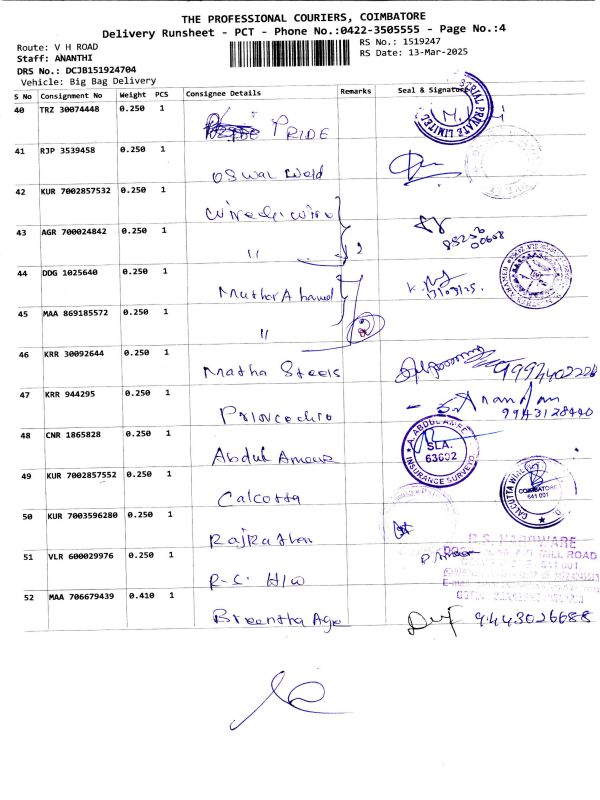 THE PROFESSIONAL COURIERS, COIMBATORE
Delivery Runsheet - PCT - Phone No.:0422-3505555 - Page No.:4
Route: V H ROAD
RS No.: 1519247
Staff: ANANTHI
RS Date: 13-Mar-2025
DRS No.: DCJB151924704
Vehicle: Big Bag Delivery
S No Consignment No Weight PCS Consignee Details Remarks Seal & Signature
40 TRZ 30074448 0.250 1 PRIDE
PRIVATE LIMITED
41 RJP 3539458 0.250 1 Oswal Weld
42 KUR 7002857532 0.250 1
43 AGR 700024842 0.250 1 "
98256
00608
44 DDG 1025640 0.250 1
13/03/25.
45 MAA 869185572 0.250 1 "
46 KRR 30092644 0.250 1 Matha Steels
47 KRR 944295 0.250 1
S. Anandan
9943128440
48 CNR 1865828 0.250 1 Abdul
SLA.
63602
INSURANCE SURVEYOR
49 KUR 7002857552 0.250 1 Calcotta
COIMBATORE
641 001
50 KUR 7003596280 0.250 1 RajRathan
51 VLR 600029976 0.250 1 R.S. H/W
R.S. HARDWARE
MILL ROAD
641 001
52 MAA 706679439 0.410 1 Breentha Age
9443026688